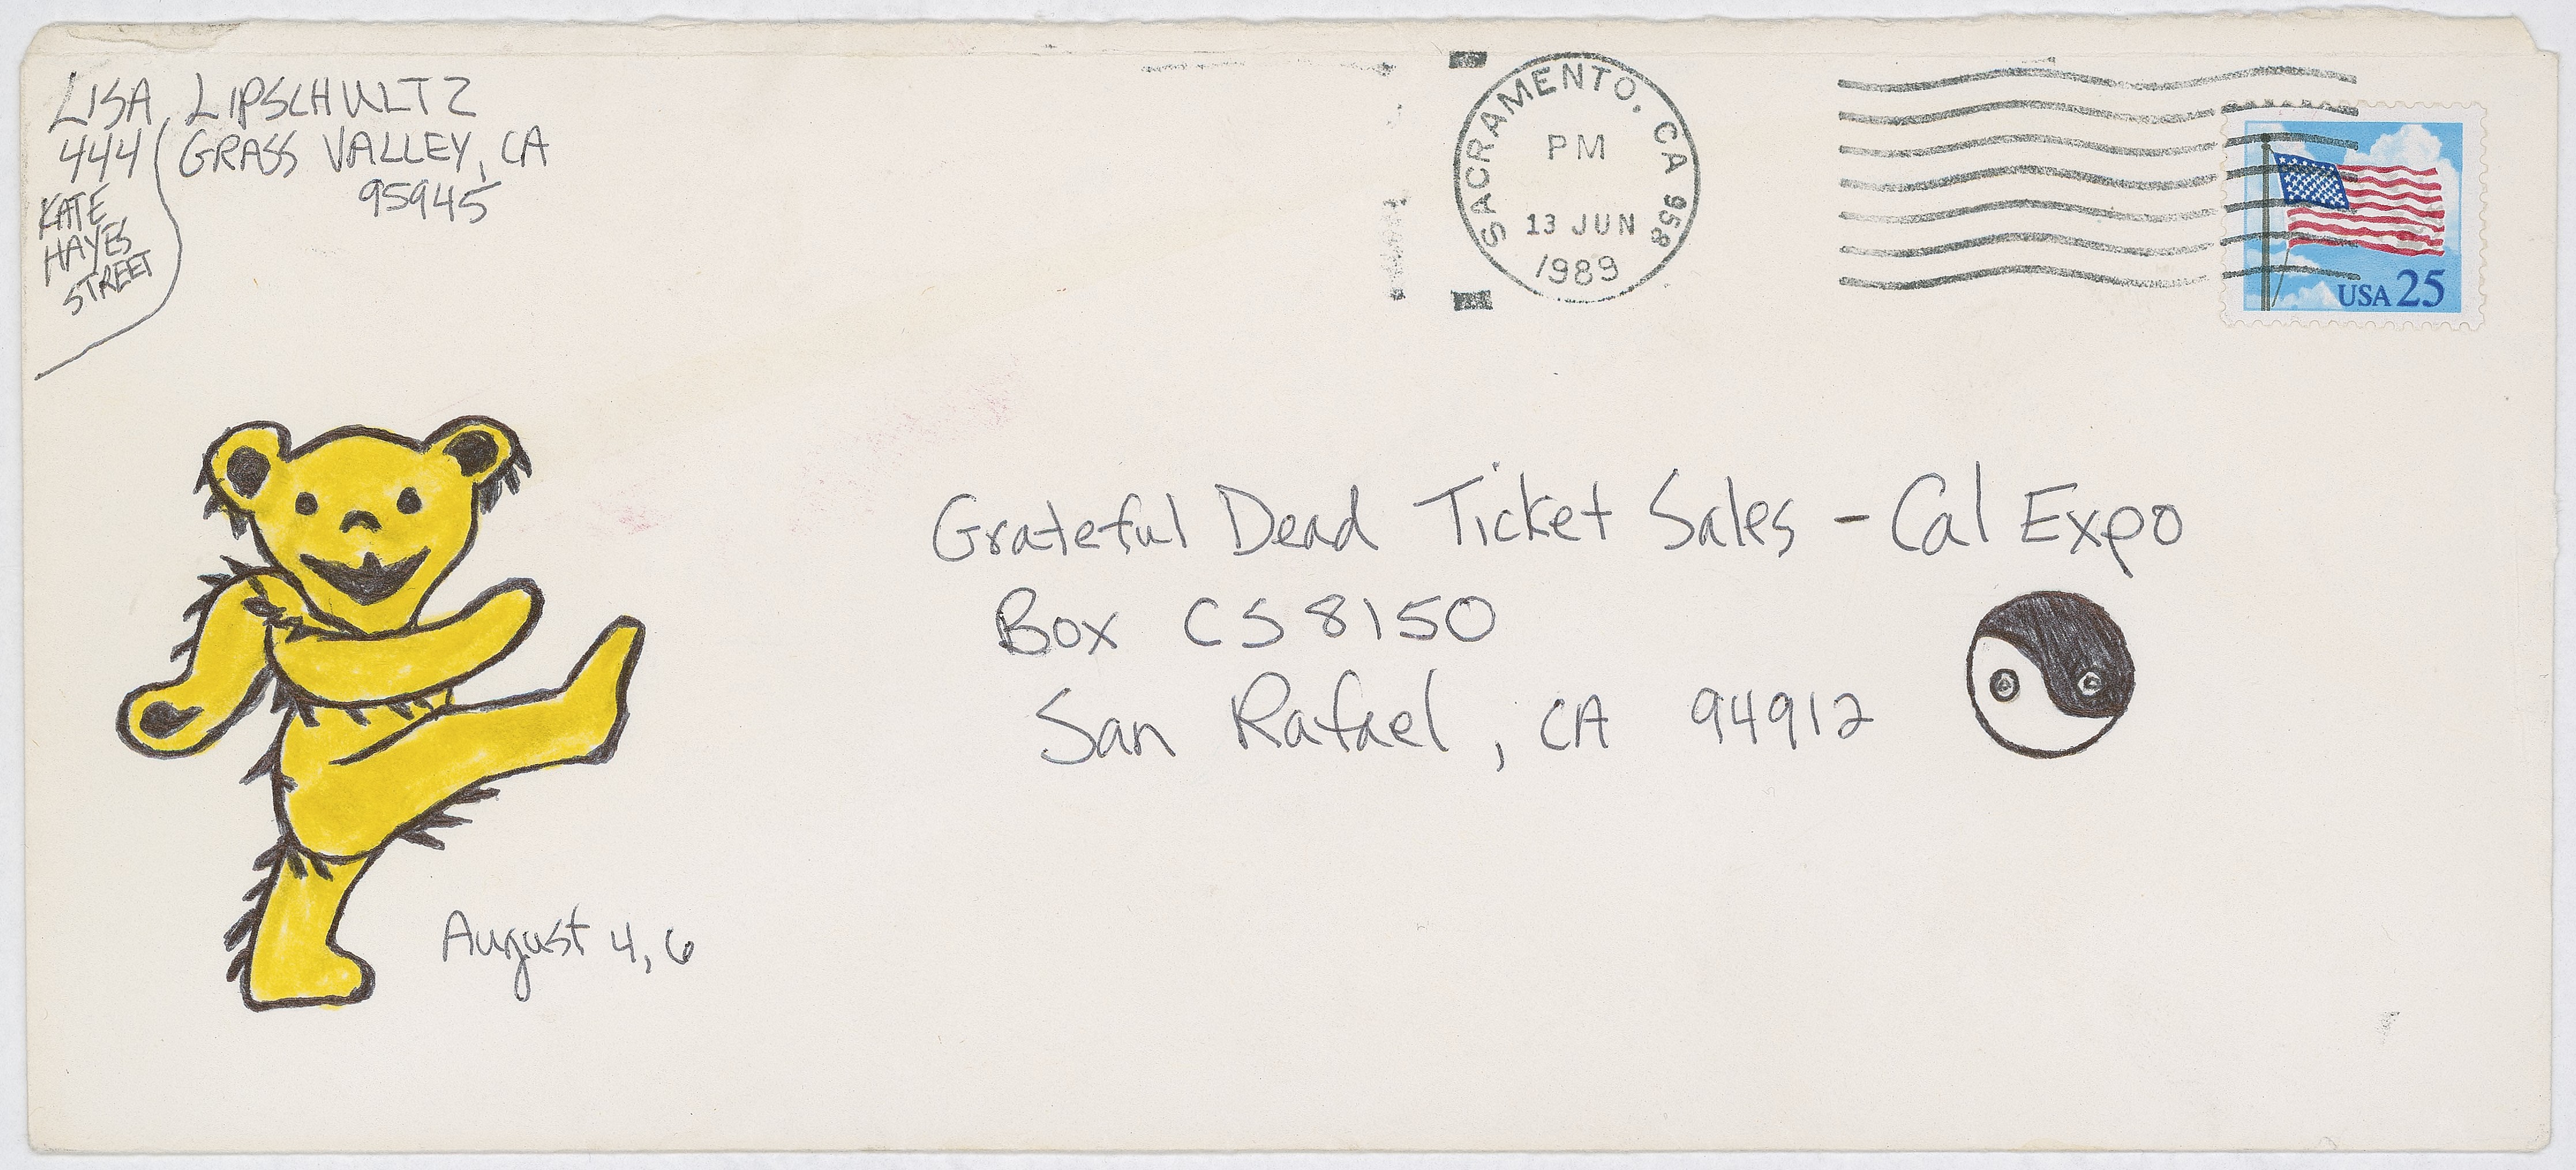 LISA LIPSCHULTZ
444 GRASS VALLEY, CA
KATE 95945
HAYES
STREET
SACRAMENTO, CA 958
PM
13 JUN
1989
USA 25
Grateful Dead Ticket Sales - Cal Expo
Box CS 8150
San Rafael, CA 94912
August 4, 6